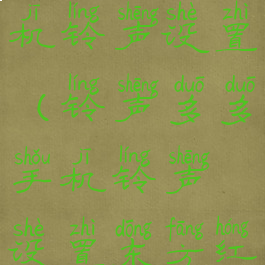 jī líng shēng shè zhì
机铃声设置
líng shēng duō duō
（铃声多多
shǒu jī líng shēng
手机铃声
shè zhì dōng fāng hóng
设置东方红